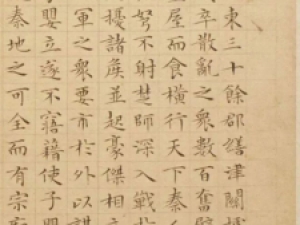 東三十餘郡繕津關據
卒散亂之衆數百奮臂
屋而食橫行天下秦人
弩不射楚師深入戰於
擾諸侯並起豪傑相
軍之衆要市於外以謀
嬰立遂不寤籍使子嬰
秦地之可全而有宗